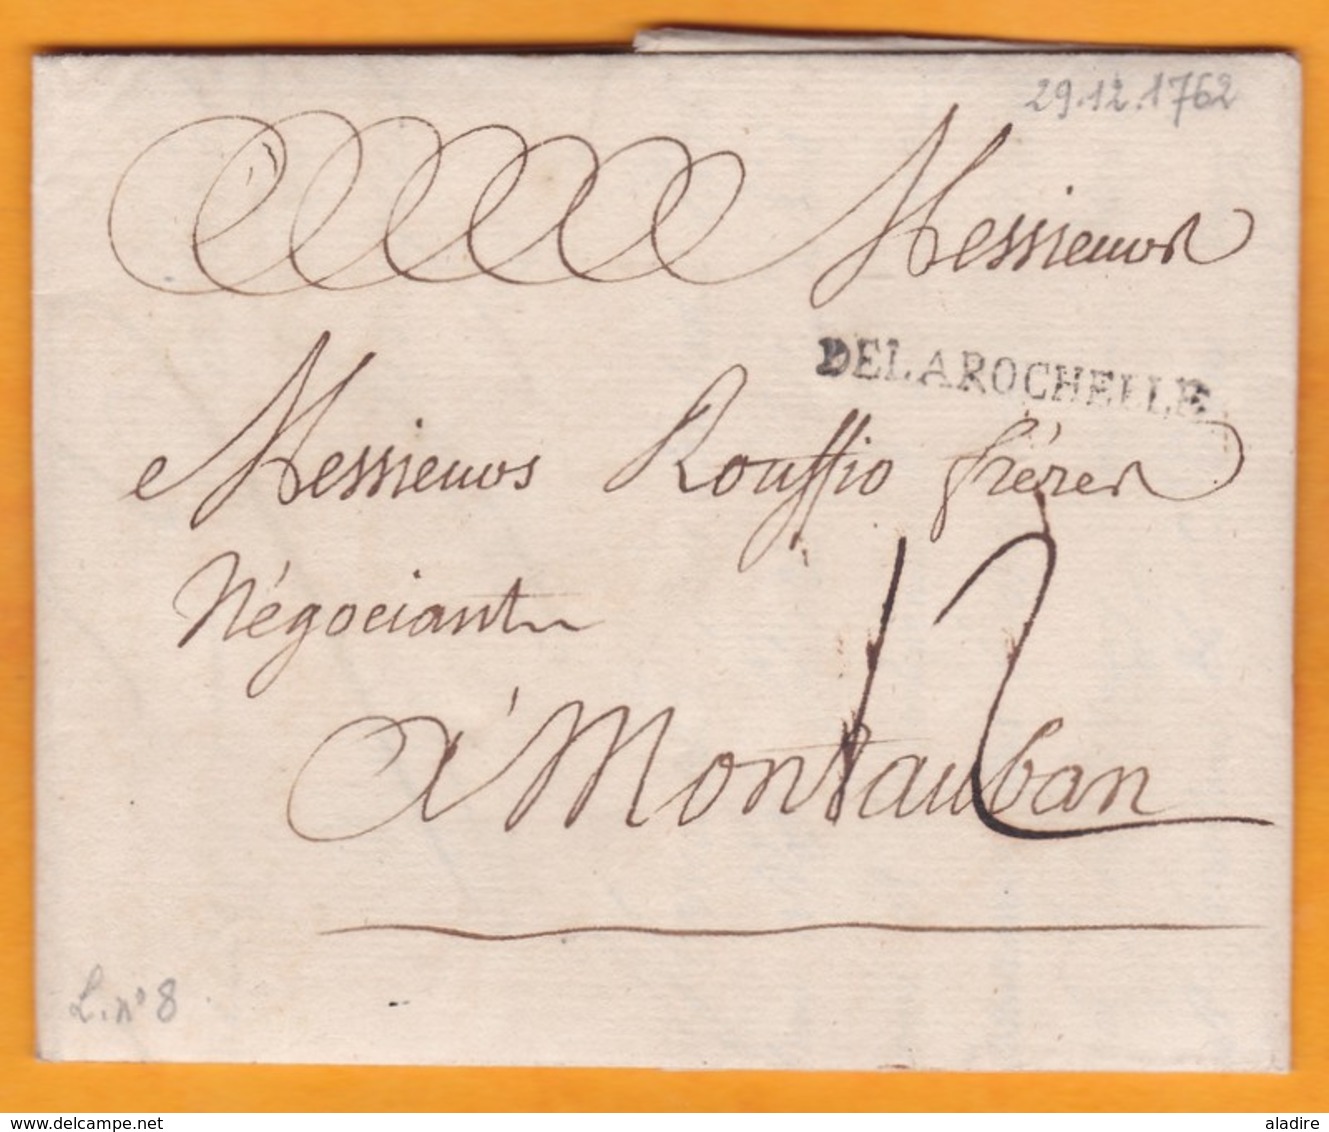 29.12.1762
Messieurs
DELAROCHELLE
Messieurs Rouffio frères
Négociant
à Montauban
12
L. n° 8
www.delcampe.net
aladire